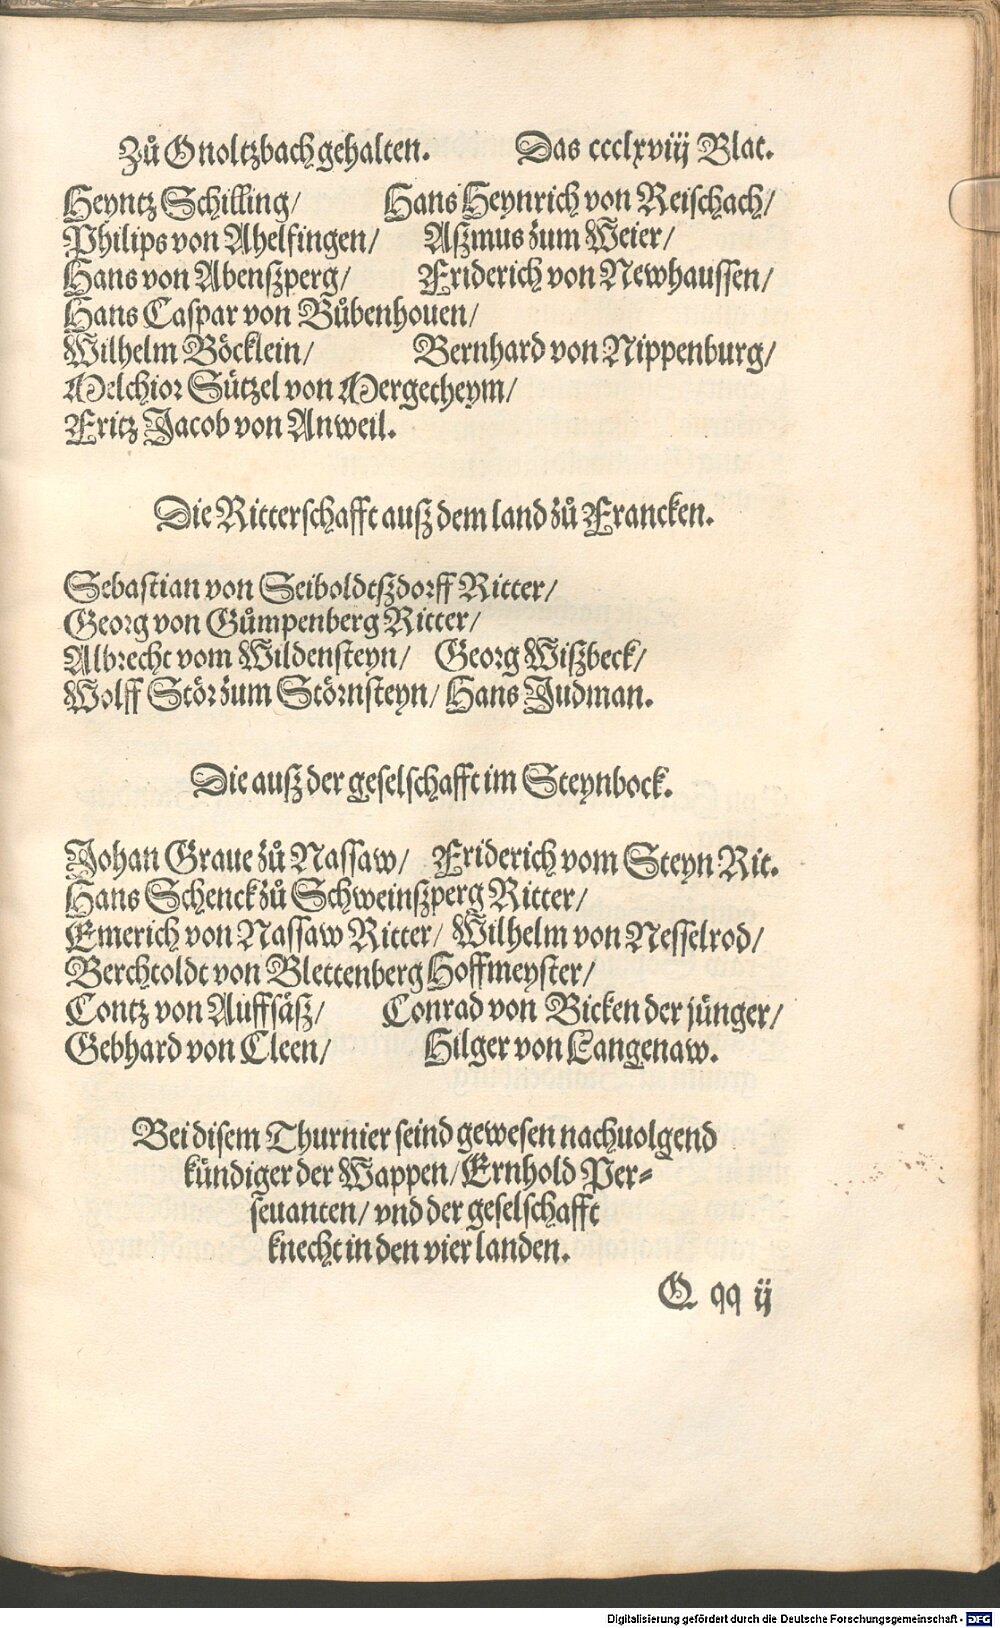 Zů Gnoltzbach gehalten. Das ccclxviij Blat.
Heyntz Schilling/ Hans Heynrich von Reischach/
Philips von Ahelfingen/ Aßmus zum Weier/
Hans von Abenßperg/ Friderich von Newhaussen/
Hans Caspar von Bůbenhouen/
Wilhelm Böcklein/ Bernhard von Nippenburg/
Melchior Sützel von Mergetheym/
Fritz Jacob von Anweil.
Die Ritterschafft auß dem land zů Francken.
Sebastian von Seiboldtßdorff Ritter/
Georg von Gůmpenberg Ritter/
Albrecht vom Wildensteyn/ Georg Wißbeck/
Wolff Stör zum Störnsteyn/ Hans Judman.
Die auß der geselschafft im Steynbock.
Johan Graue zů Nassaw/ Friderich vom Steyn Rit.
Hans Schenck zů Schweinßperg Ritter/
Emerich von Nassaw Ritter/ Wilhelm von Nesselrod/
Berchtoldt von Blettenberg Hoffmeyster/
Contz von Auffsäß/ Conrad von Bicken der jünger/
Gebhard von Cleen/ Hilger von Langenaw.
Bei disem Thurnier seind gewesen nachuolgend
kündiger der Wappen/ Ernhold Per⸗
seuanten/ vnd der geselschafft
knecht in den vier landen.
Q qq ij
Digitalisierung gefördert durch die Deutsche Forschungsgemeinschaft - DFG